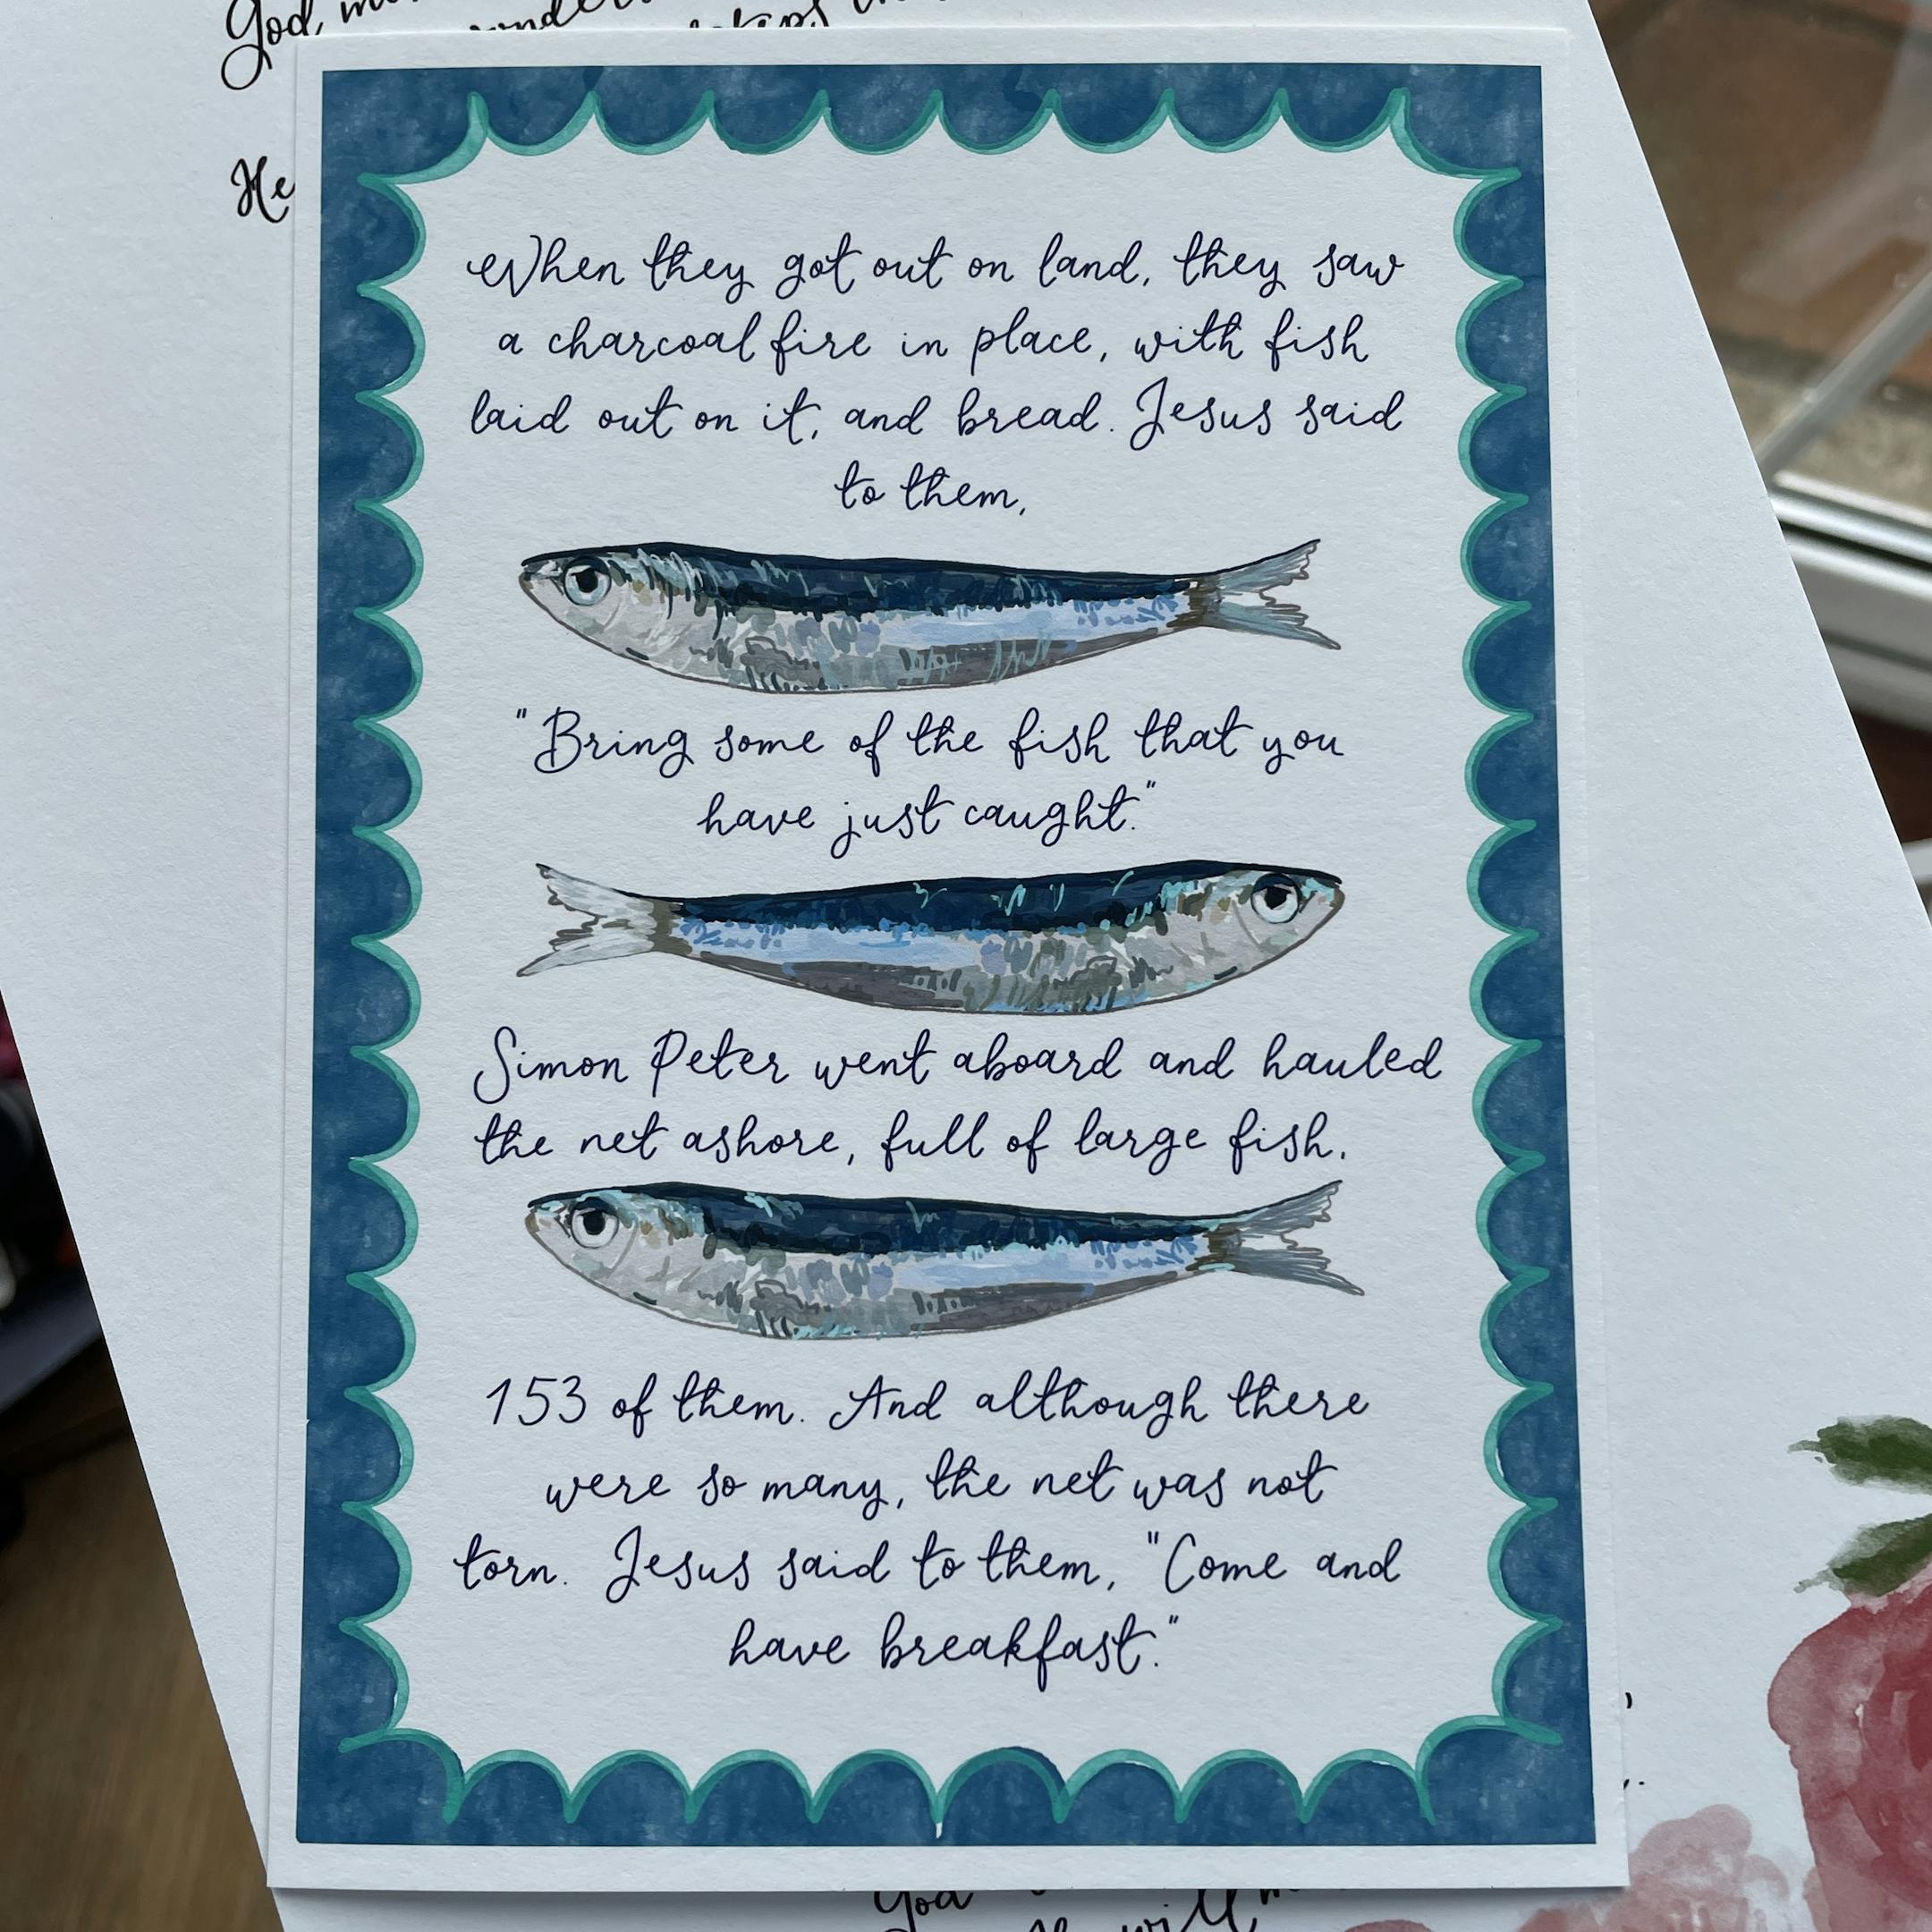 God,
He
When they got out on land, they saw
a charcoal fire in place, with fish
laid out on it, and bread. Jesus said
to them,
"Bring some of the fish that you
have just caught."
Simon Peter went aboard and hauled
the net ashore, full of large fish,
153 of them. And although there
were so many, the net was not
torn. Jesus said to them, "Come and
have breakfast."
God
will